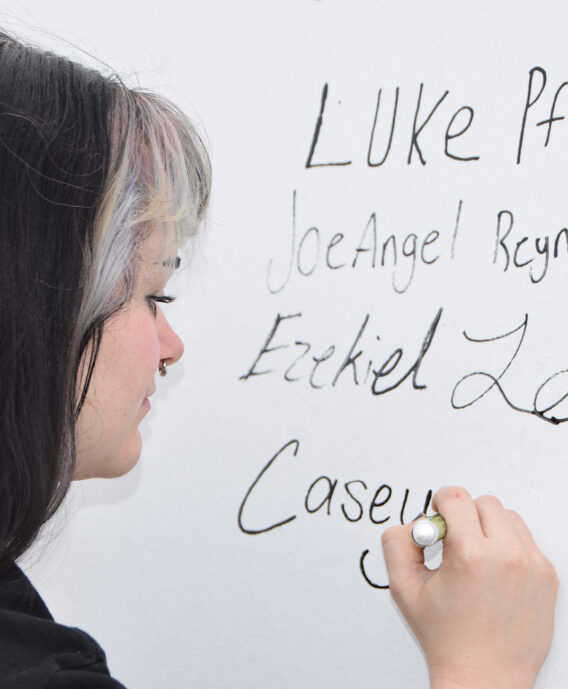 LUKE Pf
JoeAngel Reyn
Ezekiel Le
Casey